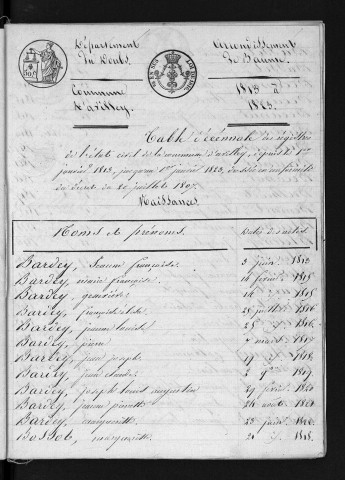 Département
du Doubs
Arrondissement
de Baume
Commune
d'avilley
1813 à
1823.
Table décennale des registres
de l'état civil de la commune d'avilley, depuis le 1er
janvier 1813, jusqu'au 1er janvier 1823, dressée en conformité
du décret du 20 juillet 1807.
Naissances
Noms et prénoms. Dates des actes
Bardey, Jeanne françoise. 3 1813
Bardey, marie françoise. 14 février 1815
Bardey, 14 1815
Bardey, juillet 1816
Bardey, 1816
Bardey, pierre 7 mars 1817
Bardey, jean joseph 19 1818
Bardey, jean claude 2 9bre 1819
Bardey, joseph louis augustin 29 février 1820
Bardey, jeanne pierrette 26 août 1821
Bardey, marguerite 23 1822
marguerite 1818